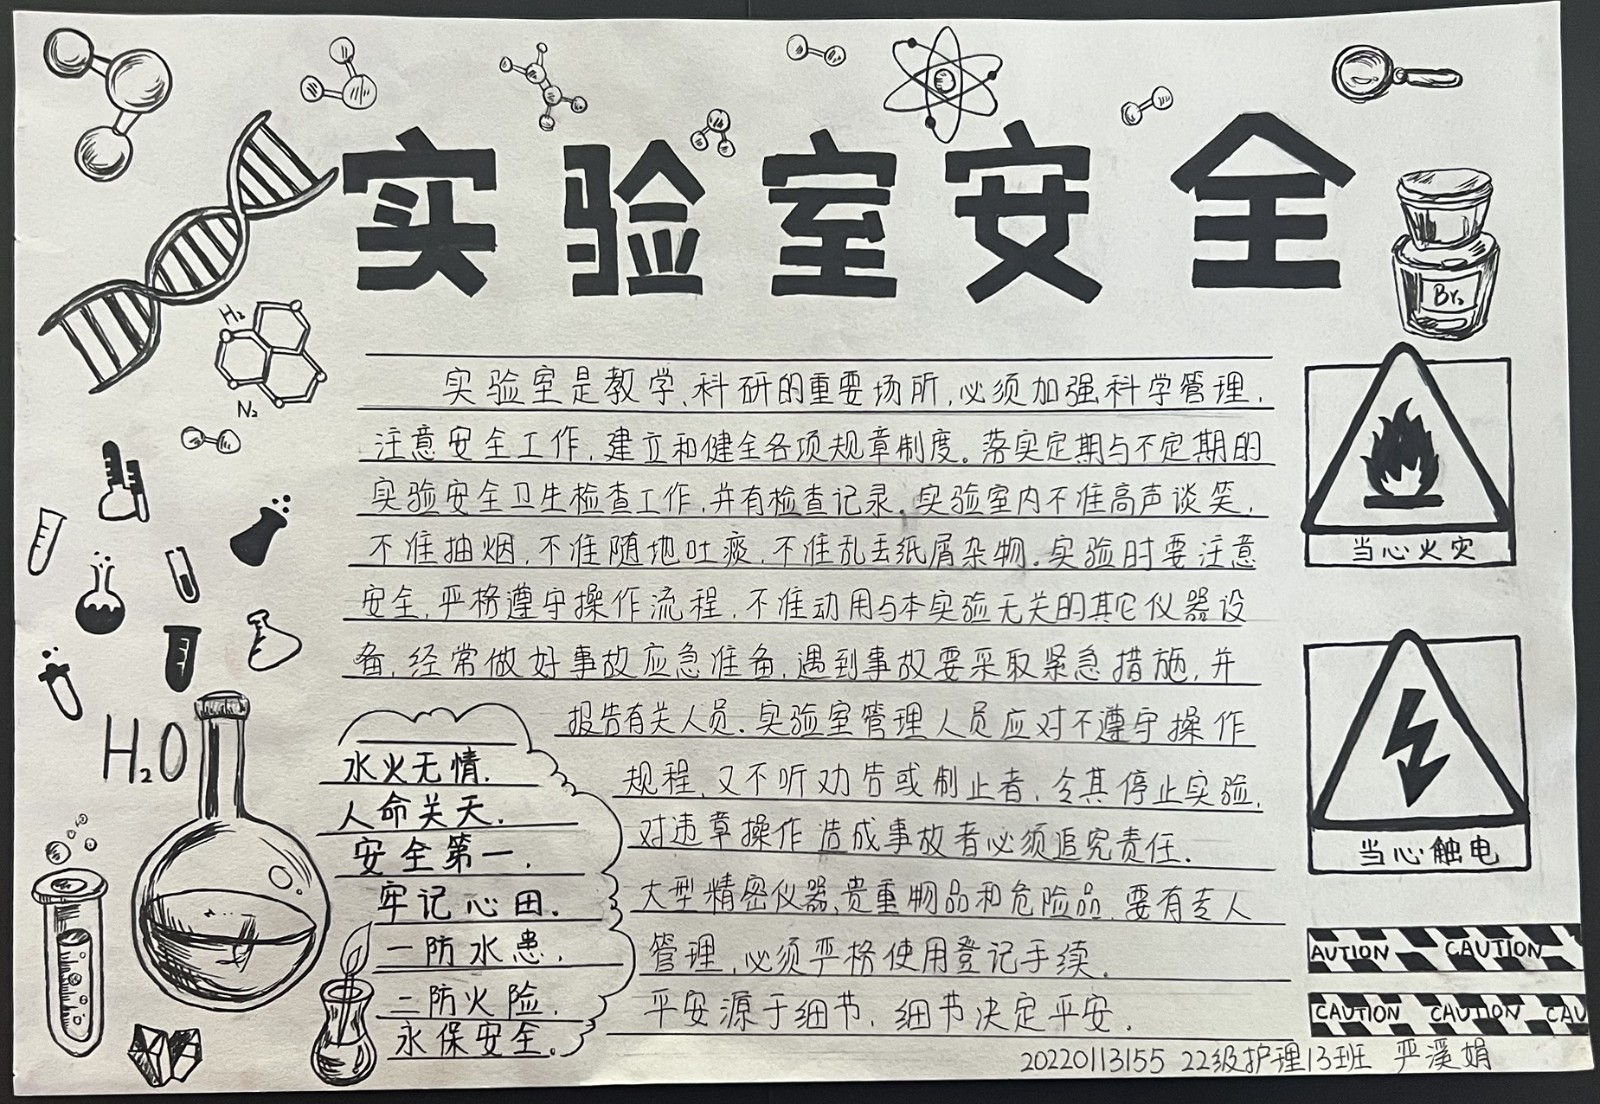 实验室安全
Br₂
H₂
N₂
实验室是教学、科研的重要场所,必须加强科学管理,
注意安全工作,建立和健全各项规章制度。落实定期与不定期的
实验安全卫生检查工作,并有检查记录。实验室内不准高声谈笑,
不准抽烟,不准随地吐痰,不准乱丢纸屑杂物。实验时要注意
安全,严格遵守操作流程,不准动用与本实验无关的其它仪器设
备,经常做好事故应急准备,遇到事故要采取紧急措施,并
报告有关人员。实验室管理人员应对不遵守操作
规程,又不听劝告或制止者,令其停止实验,
对违章操作造成事故者必须追究责任.
大型精密仪器,贵重物品和危险品,要有专人
管理,必须严格使用登记手续.
平安源于细节,细节决定平安.
当心火灾
当心触电
H₂O
水火无情,
人命关天,
安全第一,
牢记心田.
一防水患,
二防火险,
永保安全。
AUTION CAUTION
CAUTION CAUTION CAU
20220113155 22级护理13班 严溪娟